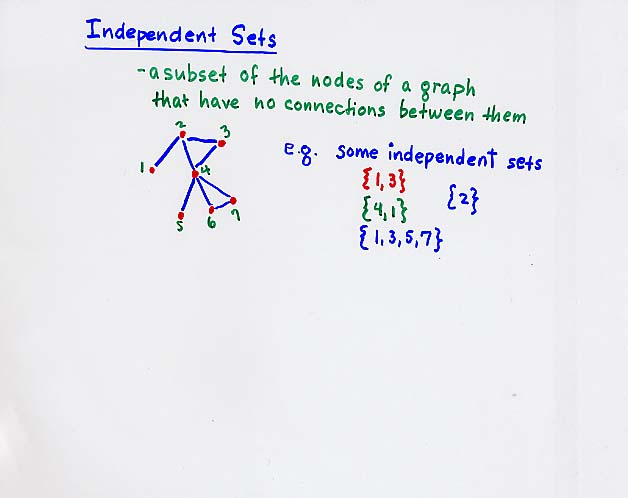 Independent Sets
- a subset of the nodes of a graph
that have no connections between them
2
3
e.g. some independent sets
1
4
{1,3}
{2}
{4,1}
5
6
7
{1,3,5,7}